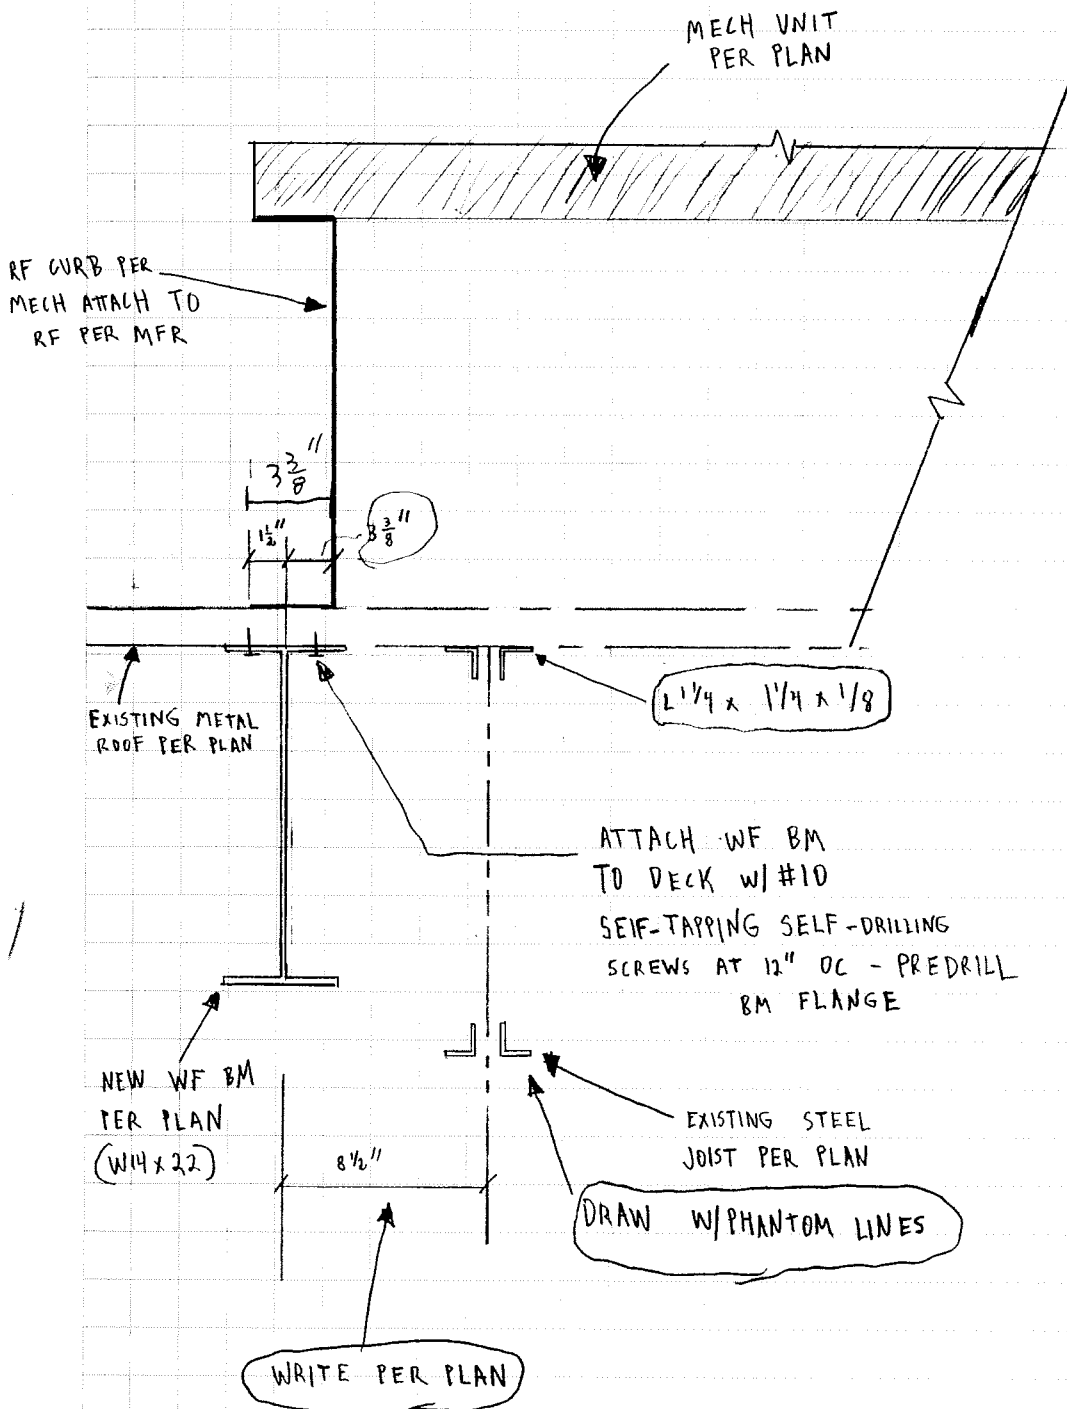 MECH UNIT
PER PLAN
RF CURB PER
MECH ATTACH TO
RF PER MFR
3 3/8"
1 1/2"
3 3/8"
EXISTING METAL
ROOF PER PLAN
L 1 1/4 x 1 1/4 x 1/8
ATTACH WF BM
TO DECK W/ #10
SELF-TAPPING SELF-DRILLING
SCREWS AT 12" OC - PREDRILL
BM FLANGE
NEW WF BM
PER PLAN
(W14 x 22)
EXISTING STEEL
JOIST PER PLAN
8 1/2"
DRAW W/PHANTOM LINES
WRITE PER PLAN